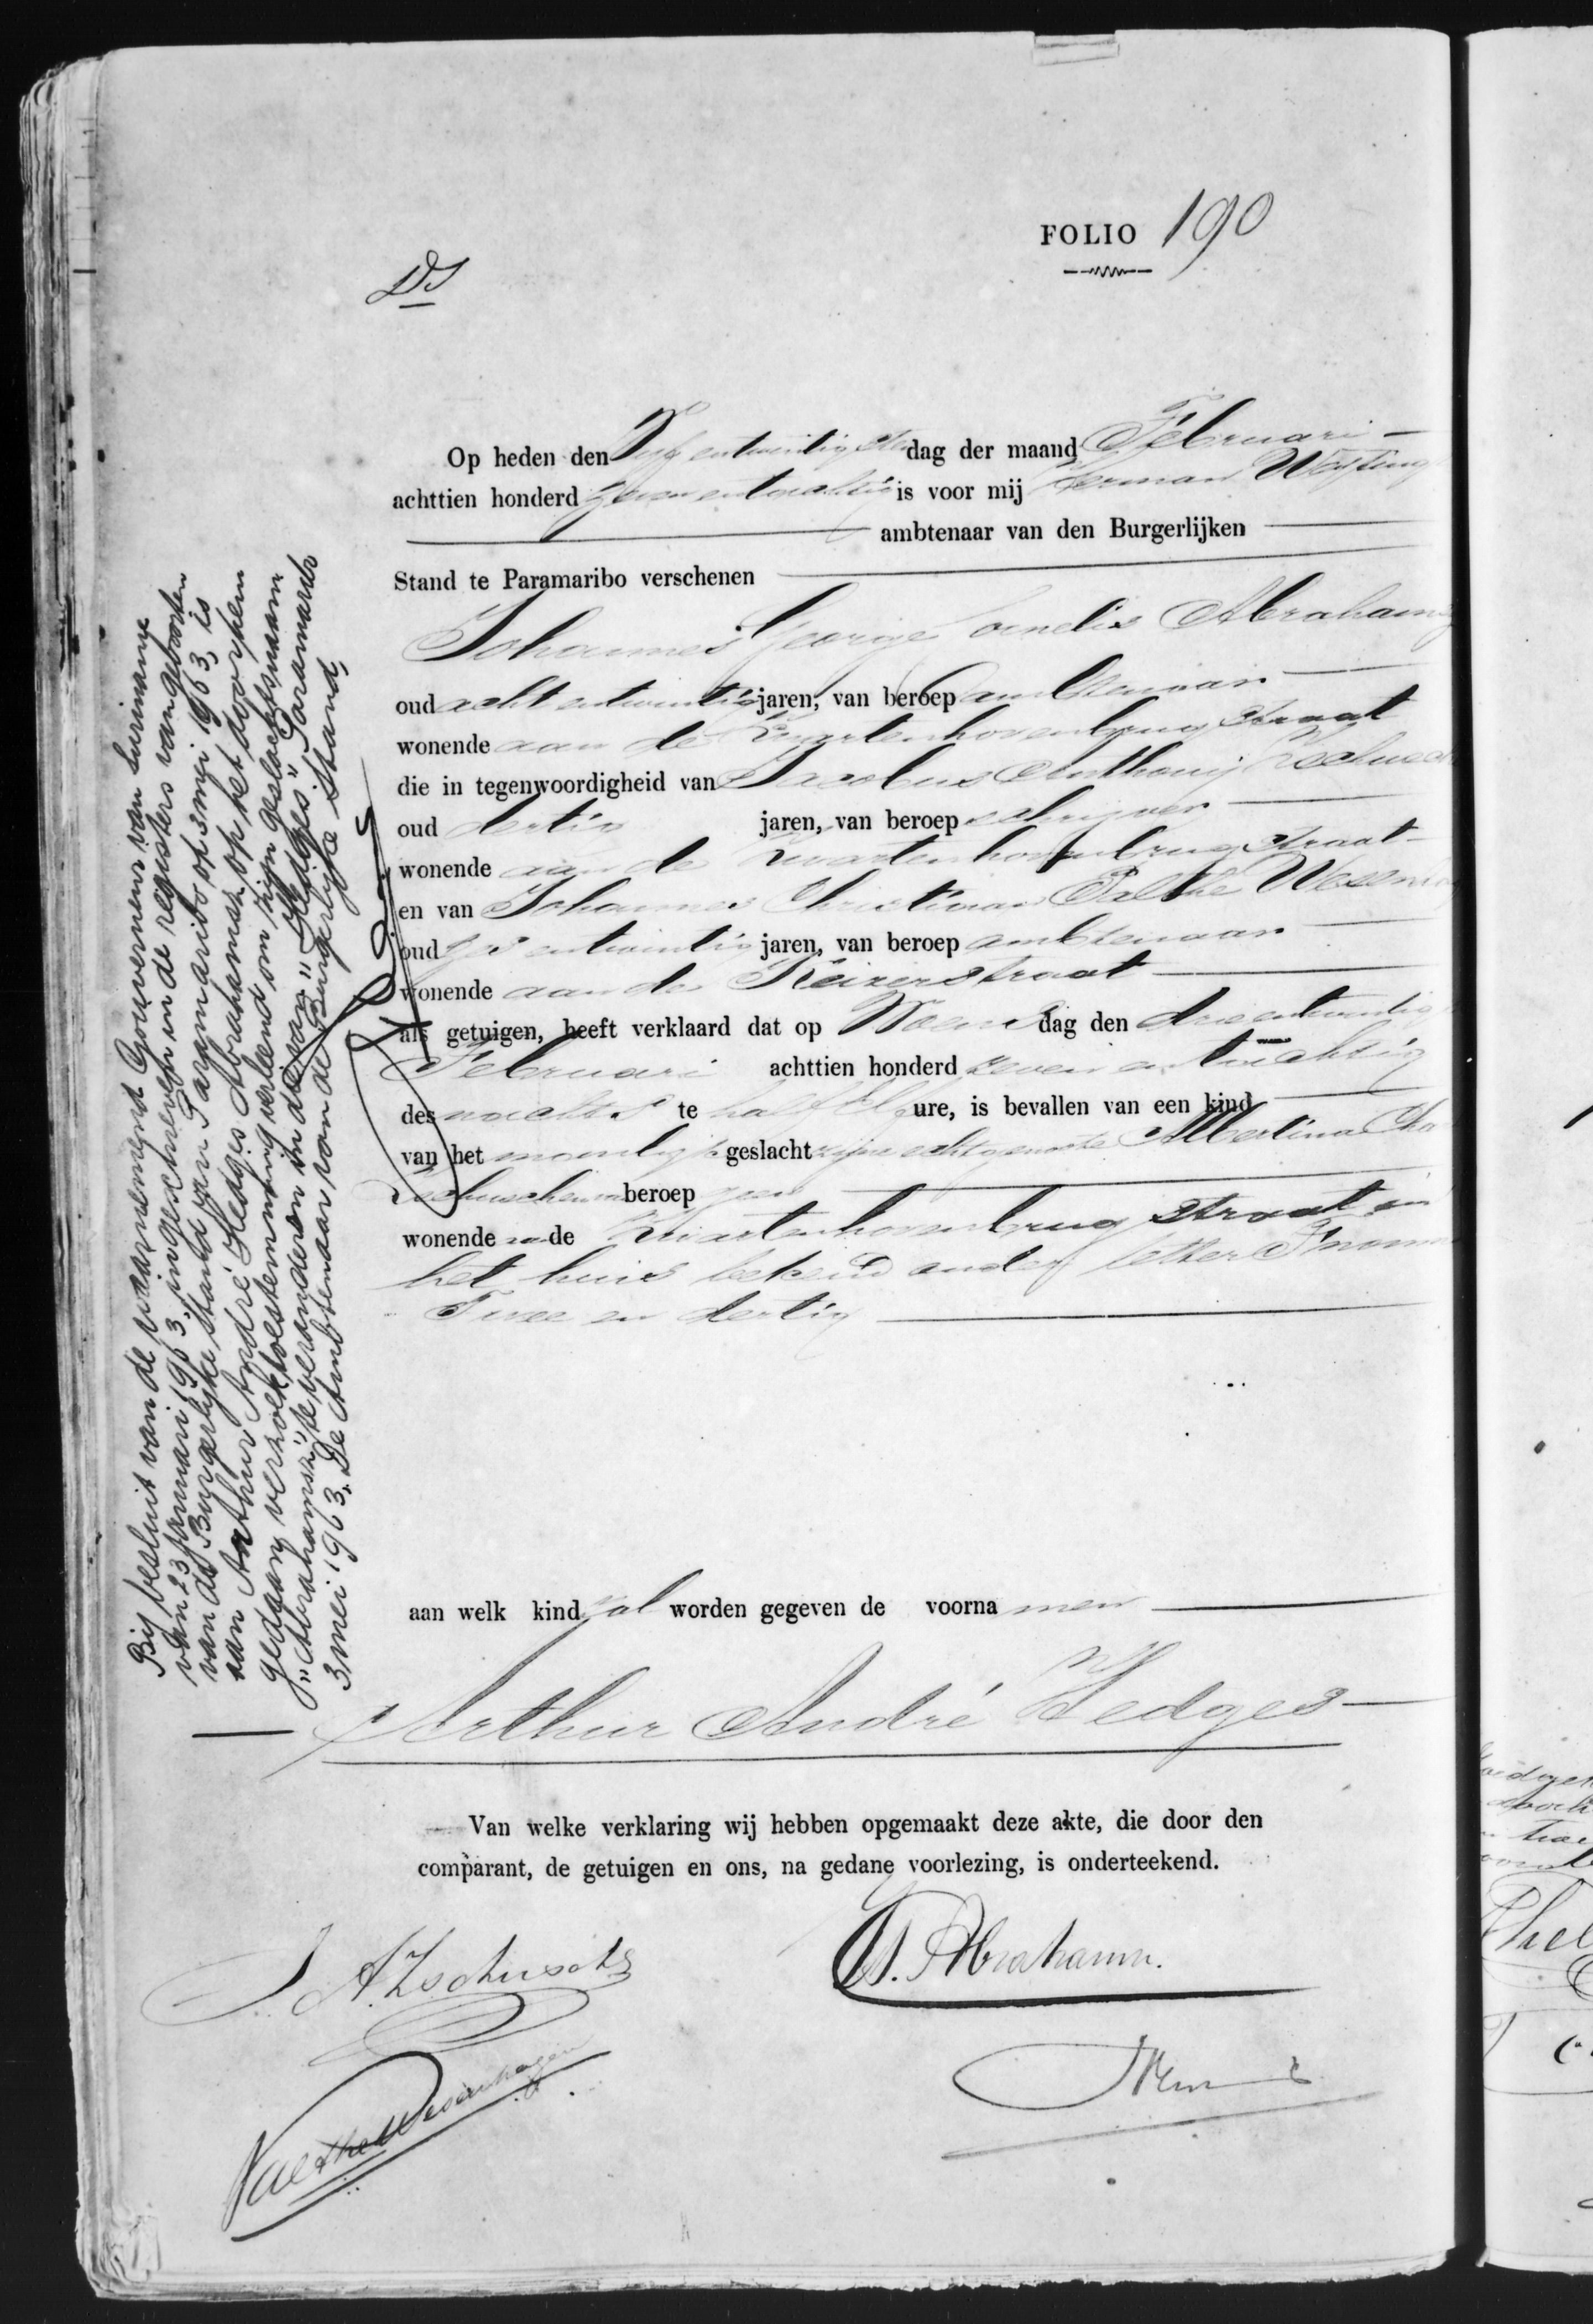 FOLIO 190
DS
Op heden den Vijf entwintigsten dag der maand Februari
achttien honderd zeven entachtig is voor mij Herman Westing
ambtenaar van den Burgerlijken
Stand te Paramaribo verschenen
Johannes George Cornelis Abrahams
oud acht entwintig jaren, van beroep ambtenaar
wonende aan de Zwartenhovenbrug straat
die in tegenwoordigheid van Jacobus Anthonij
oud dertig jaren, van beroep schrijver
wonende aan de Zwartenhovenbrug straat
en van Johannes Christiaan Palthe Wesen
oud entwintig jaren, van beroep ambtenaar
wonende aan de Keizerstraat
als getuigen, heeft verklaard dat op Woens dag den drie entwintig
Februari achttien honderd zeven en tachtig
des nachts te half ure, is bevallen van een kind
van het manlijk geslacht zijne echtgenoote Albertina
beroep geen
wonende aan de Zwartenhovenbrug straat in
het huis bekend onder letter
Twee en dertig
aan welk kind zal worden gegeven de voorna men
Arthur André Hedges
Van welke verklaring wij hebben opgemaakt deze akte, die door den
comparant, de getuigen en ons, na gedane voorlezing, is onderteekend.
J. A. Zschuschen
Abrahams.
Palthe Wesenhagen
Bij besluit van de waarnemend Gouverneur van Suriname
van 23 januari 1963, ingeschreven in de registers van geboorten
van de Burgerlijke Stand van Paramaribo op 3 mei 1963, is
aan Arthur André Hedges Abrahamsz op het door hem
gedaan verzoek toestemming verleend om zijn geslachtsnaam
"Abrahamsz" te veranderen in die van "Hedges". Paramaribo
3 mei 1963. De Ambtenaar van de Burgerlijke Stand,